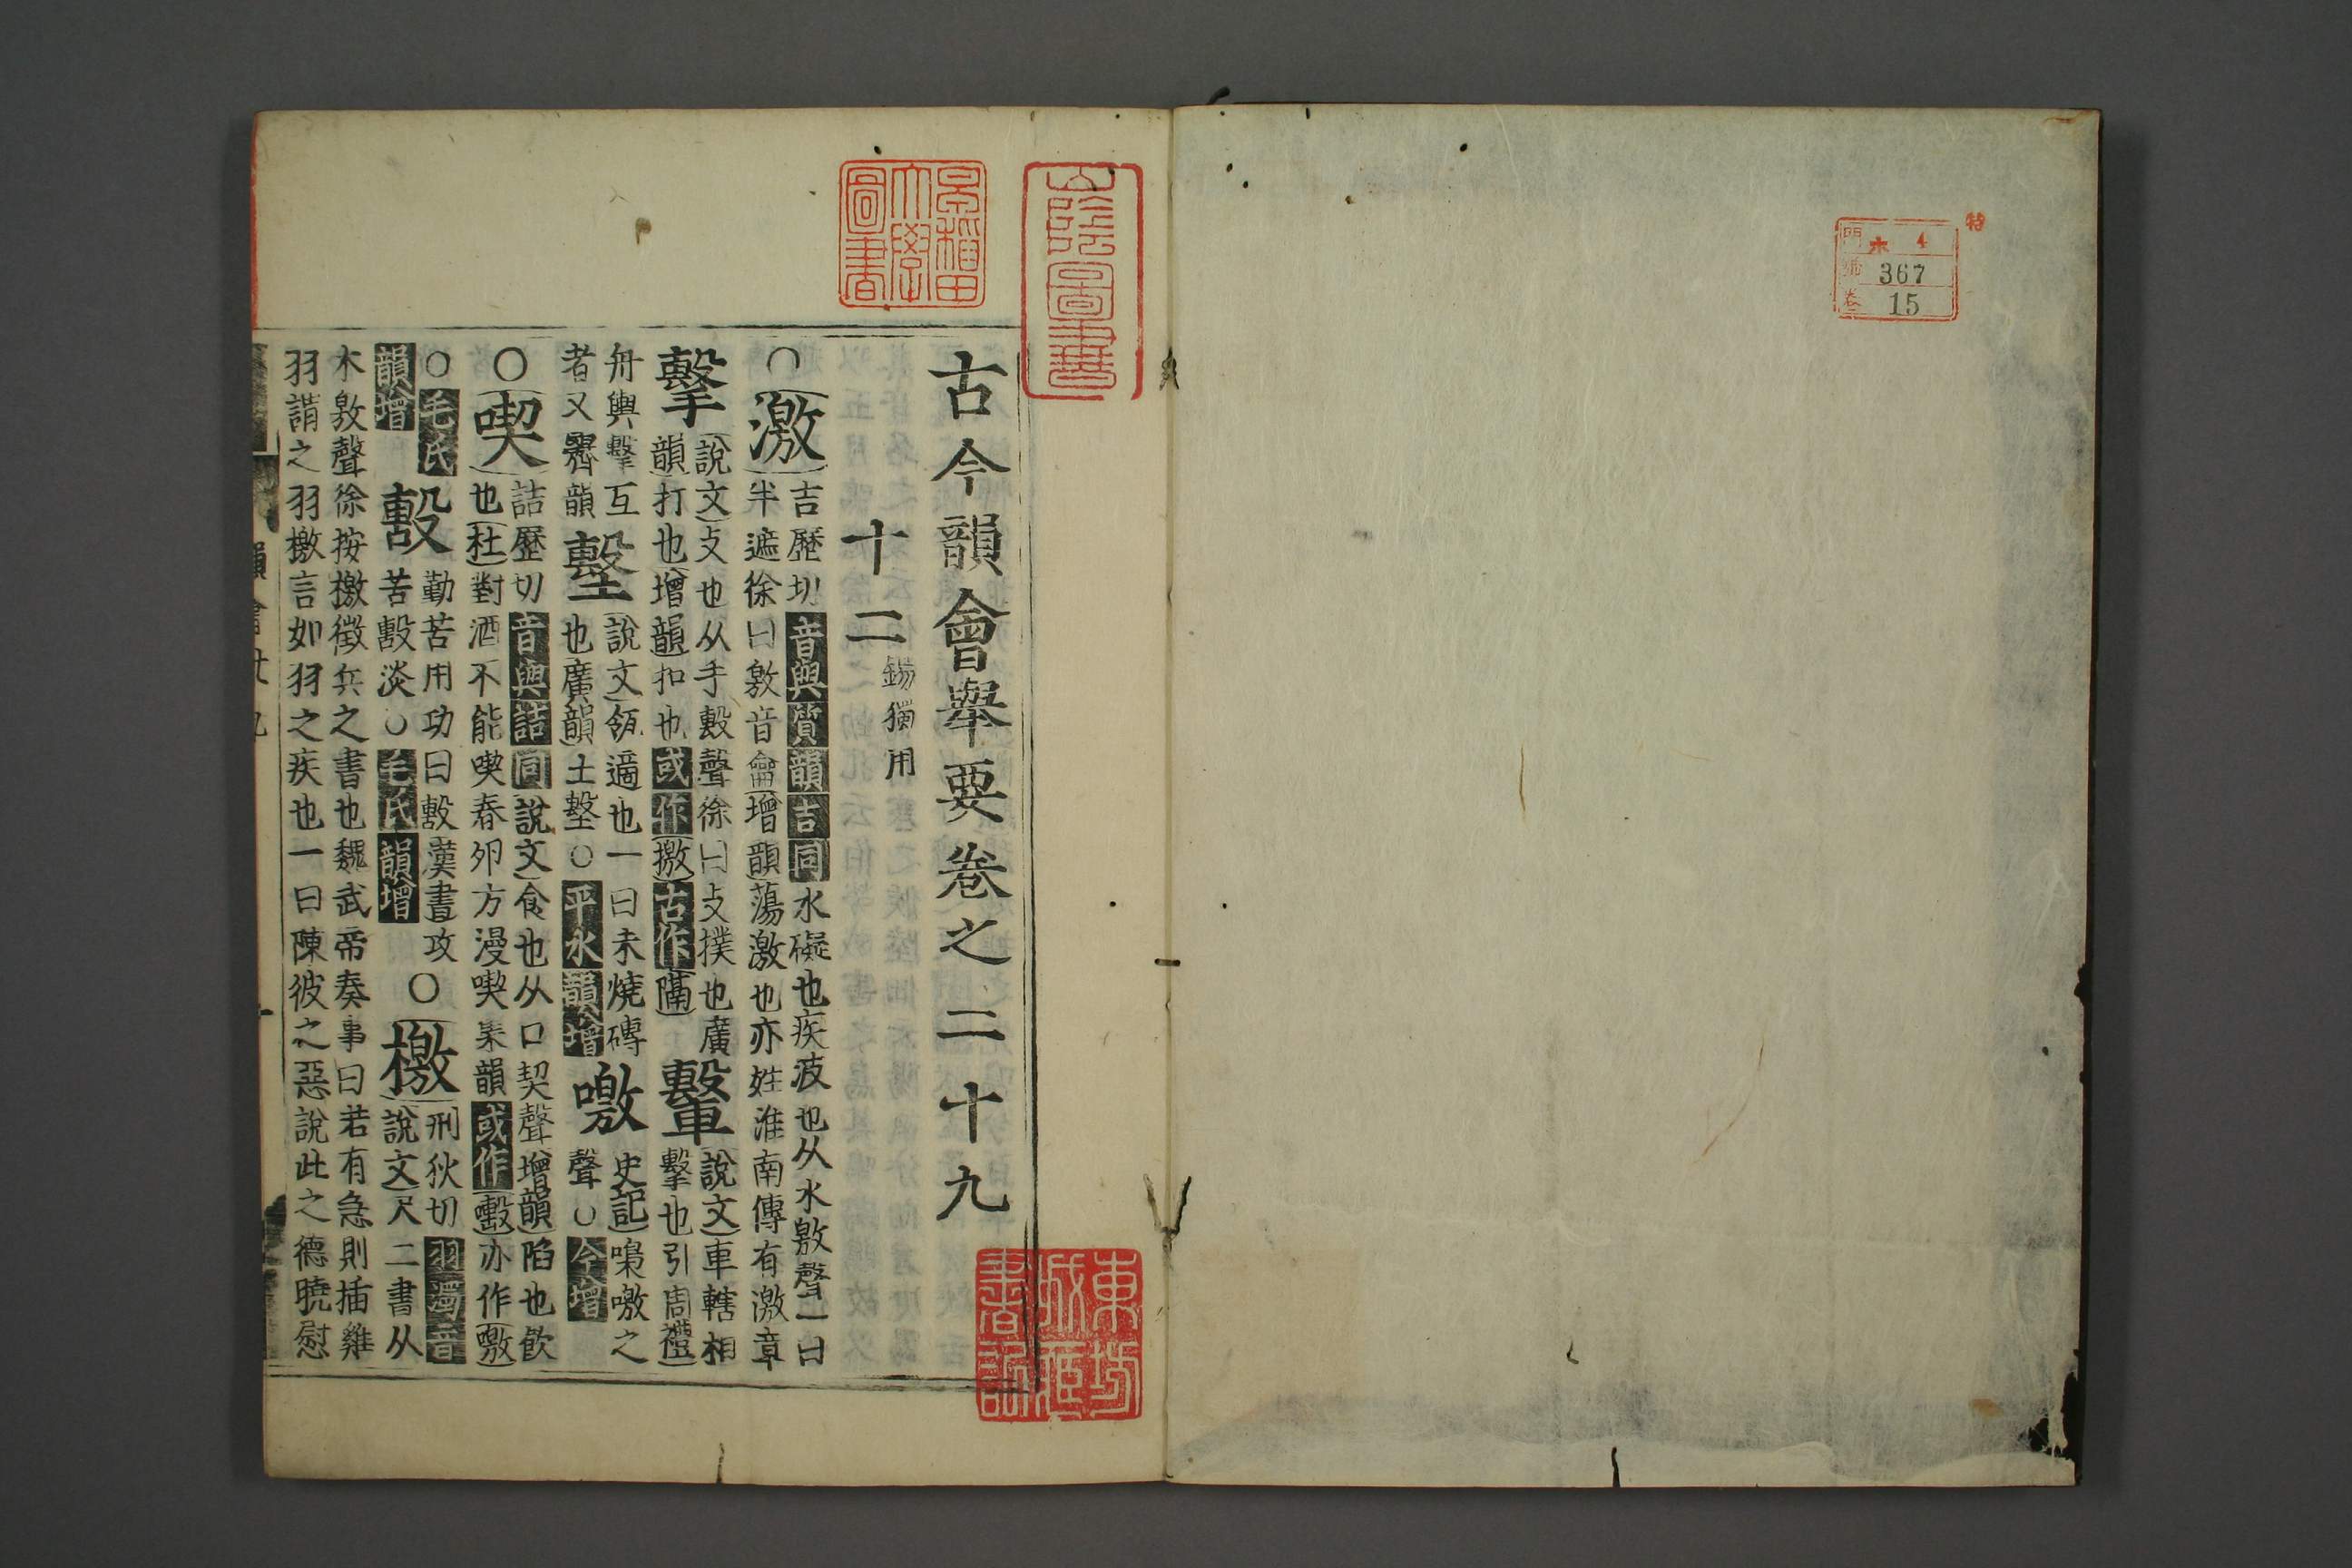 特
門 ホ 4
號 367
卷 15
古今韻會舉要卷之二十九
十二錫獨用
○激吉歷切音與質韻吉同水礙也疾波也从水敫聲一曰
半遮徐曰敫音龠增韻蕩激也亦姓淮南傳有激章
擊說文攴也从手毄聲徐曰攴撲也廣
韻打也增韻扣也或作撽古作隔
轚說文車轄相
擊也引周禮
舟輿轚互
者又霽韻
墼說文瓴適也一曰未燒磚
也廣韻土墼○平水韻增
噭史記嘄噭之
聲○今增
○喫詰歷切音與詰同說文食也从口契聲增韻啗也飲
也杜對酒不能喫春卵方漫喫柰韻或作㱅亦作噭
○毛氏
韻增
毄勤苦用功曰毄漢書攻
苦毄淡○毛氏韻增
○檄刑狄切羽濁音
說文尺二書从
木敫聲徐按檄徵兵之書也魏武帝奏事曰若有急則插雞
羽謂之羽檄言如羽之疾也一曰陳彼之惡說此之德曉慰
韻會廿九
早稻田大學圖書
圖書
東坊城藏書